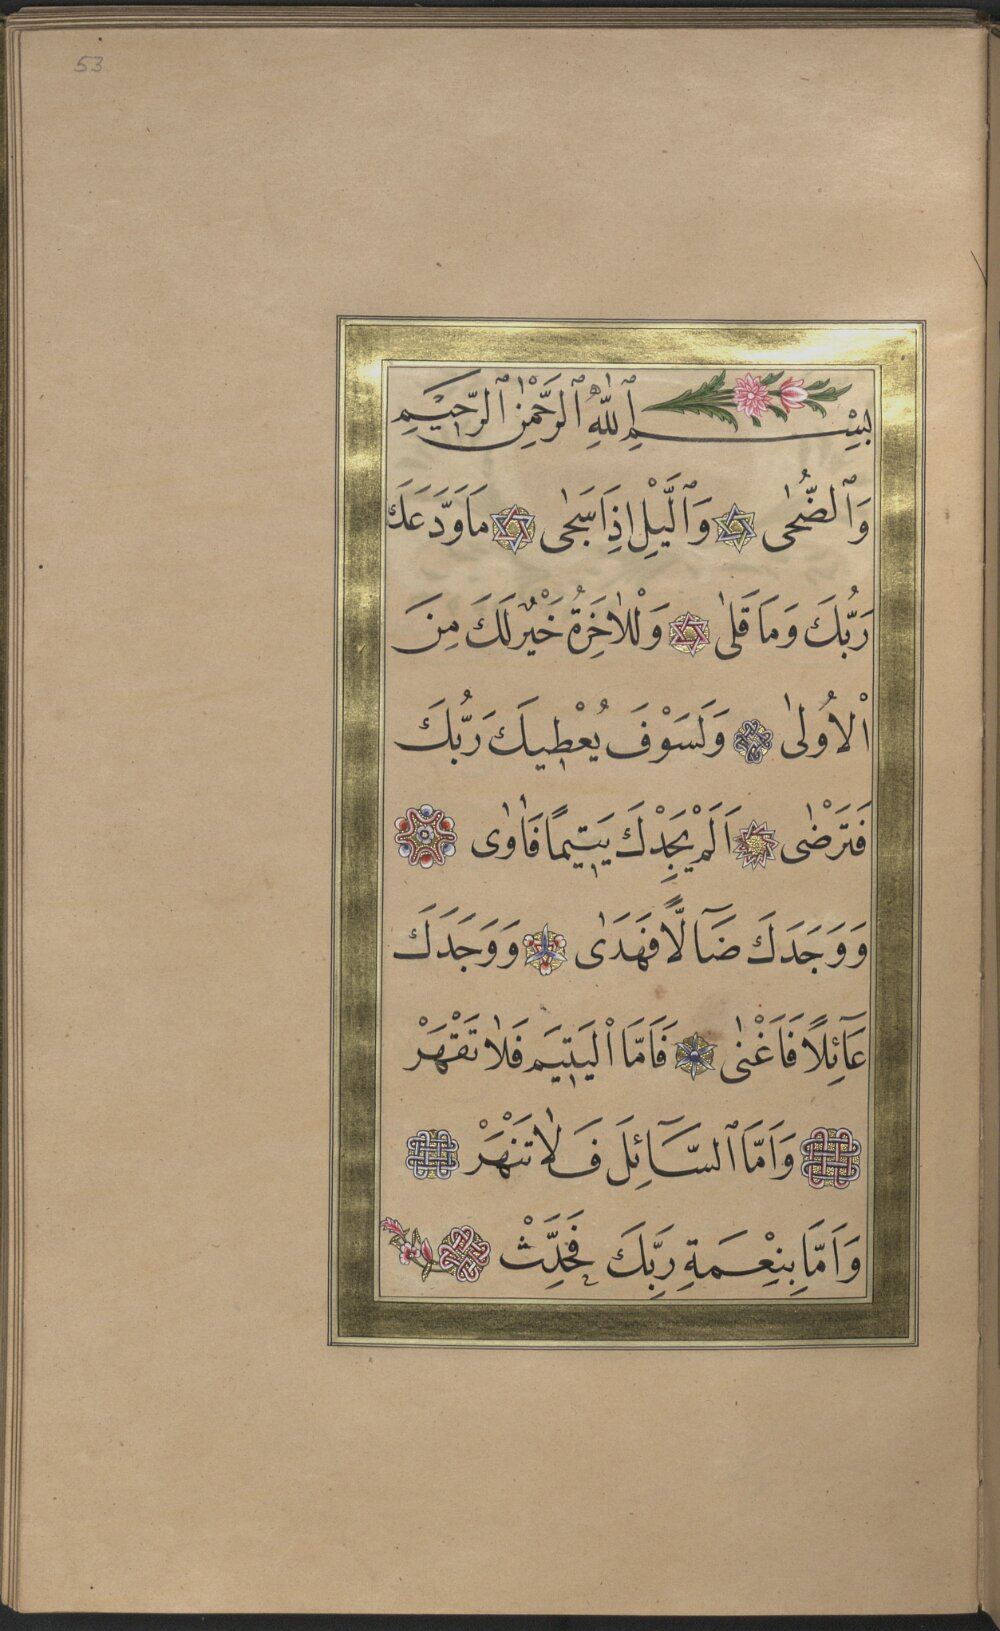 53
بِسْمِ ٱللّٰهِ ٱلرَّحْمٰنِ ٱلرَّحِيمِ
وَٱلضُّحٰى وَٱلَّيْلِ اِذَا سَجٰى مَا وَدَّعَكَ
رَبُّكَ وَمَا قَلٰى وَلْلاٰخِرَةُ خَيْرٌ لَكَ مِنَ
اْلاُولٰى وَلَسَوْفَ يُعْطِيكَ رَبُّكَ
فَتَرْضٰى اَلَمْ يَجِدْكَ يَتِيمًا فَاٰوٰى
وَوَجَدَكَ ضَٓالًّا فَهَدٰى وَوَجَدَكَ
عَٓائِلًا فَاَغْنٰى فَاَمَّا اْليَتِيمَ فَلاٰ تَقْهَرْ
وَاَمَّا ٱلسَّٓائِلَ فَلاٰ تَنْهَرْ
وَاَمَّا بِنِعْمَةِ رَبِّكَ فَحَدِّثْ